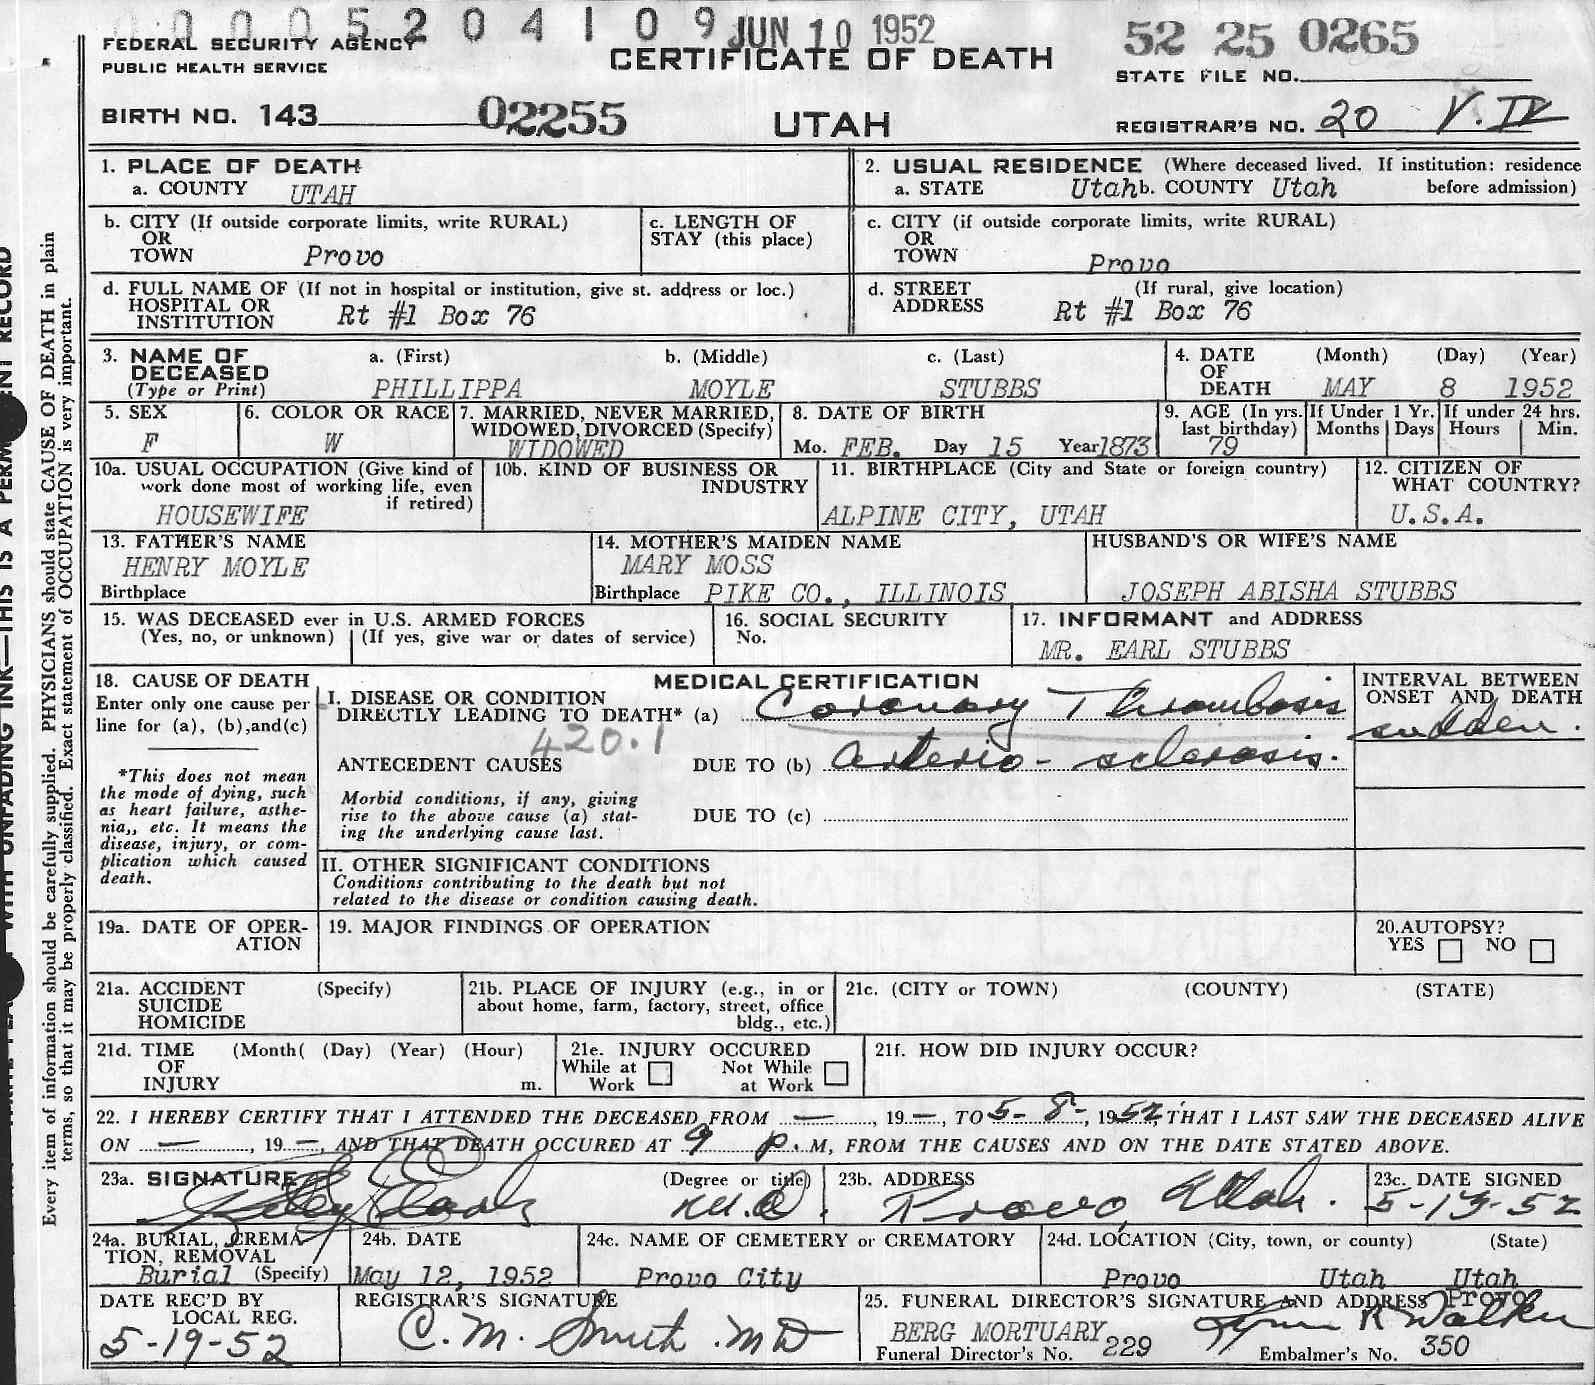 0005204109 JUN 10 1952
52 25 0265
FEDERAL SECURITY AGENCY
PUBLIC HEALTH SERVICE
CERTIFICATE OF DEATH
STATE FILE NO.
BIRTH NO. 143 02255
UTAH
REGISTRAR'S NO. 20 V. IV
1. PLACE OF DEATH
a. COUNTY UTAH
2. USUAL RESIDENCE (Where deceased lived. If institution: residence before admission)
a. STATE Utah b. COUNTY Utah
b. CITY (If outside corporate limits, write RURAL)
OR
TOWN Provo
c. LENGTH OF
STAY (this place)
c. CITY (if outside corporate limits, write RURAL)
OR
TOWN Provo
d. FULL NAME OF (If not in hospital or institution, give st. address or loc.)
HOSPITAL OR
INSTITUTION Rt #1 Box 76
d. STREET (If rural, give location)
ADDRESS Rt #1 Box 76
3. NAME OF DECEASED
(Type or Print)
a. (First) b. (Middle) c. (Last)
PHILLIPPA MOYLE STUBBS
4. DATE OF DEATH (Month) (Day) (Year)
MAY 8 1952
5. SEX
F
6. COLOR OR RACE
W
7. MARRIED, NEVER MARRIED,
WIDOWED, DIVORCED (Specify)
WIDOWED
8. DATE OF BIRTH
Mo. FEB. Day 15 Year 1873
9. AGE (In yrs. last birthday)
79
If Under 1 Yr.
Months Days
If under 24 hrs.
Hours Min.
10a. USUAL OCCUPATION (Give kind of
work done most of working life, even
if retired)
HOUSEWIFE
10b. KIND OF BUSINESS OR
INDUSTRY
11. BIRTHPLACE (City and State or foreign country)
ALPINE CITY, UTAH
12. CITIZEN OF
WHAT COUNTRY?
U.S.A.
13. FATHER'S NAME
HENRY MOYLE
Birthplace
14. MOTHER'S MAIDEN NAME
MARY MOSS
Birthplace PIKE CO., ILLINOIS
HUSBAND'S OR WIFE'S NAME
JOSEPH ABISHA STUBBS
15. WAS DECEASED ever in U.S. ARMED FORCES
(Yes, no, or unknown) (If yes, give war or dates of service)
16. SOCIAL SECURITY
No.
17. INFORMANT and ADDRESS
MR. EARL STUBBS
18. CAUSE OF DEATH
Enter only one cause per
line for (a), (b), and (c)
*This does not mean
the mode of dying, such
as heart failure, asthe-
nia,, etc. It means the
disease, injury, or com-
plication which caused
death.
MEDICAL CERTIFICATION
I. DISEASE OR CONDITION
DIRECTLY LEADING TO DEATH* (a) Coronary Thrombosis
420.1
ANTECEDENT CAUSES DUE TO (b) arterio-sclerosis.
Morbid conditions, if any, giving
rise to the above cause (a) stat-
ing the underlying cause last.
DUE TO (c)
INTERVAL BETWEEN
ONSET AND DEATH
sudden.
II. OTHER SIGNIFICANT CONDITIONS
Conditions contributing to the death but not
related to the disease or condition causing death.
19a. DATE OF OPER-
ATION
19. MAJOR FINDINGS OF OPERATION
20. AUTOPSY?
YES NO
21a. ACCIDENT (Specify)
SUICIDE
HOMICIDE
21b. PLACE OF INJURY (e.g., in or
about home, farm, factory, street, office
bldg., etc.)
21c. (CITY or TOWN) (COUNTY) (STATE)
21d. TIME (Month( (Day) (Year) (Hour)
OF
INJURY m.
21e. INJURY OCCURED
While at Work Not While at Work
21f. HOW DID INJURY OCCUR?
22. I HEREBY CERTIFY THAT I ATTENDED THE DECEASED FROM —, 19—, TO 5-8-, 1952, THAT I LAST SAW THE DECEASED ALIVE
ON —, 19—, AND THAT DEATH OCCURED AT 9 p.M, FROM THE CAUSES AND ON THE DATE STATED ABOVE.
23a. SIGNATURE (Degree or title)
M.D.
23b. ADDRESS
Provo, Utah.
23c. DATE SIGNED
5-13-52
24a. BURIAL, CREMA-
TION, REMOVAL
Burial (Specify)
24b. DATE
May 12, 1952
24c. NAME OF CEMETERY or CREMATORY
Provo City
24d. LOCATION (City, town, or county) (State)
Provo Utah Utah
DATE REC'D BY
LOCAL REG.
5-19-52
REGISTRAR'S SIGNATURE
C. M. Smith MD
25. FUNERAL DIRECTOR'S SIGNATURE AND ADDRESS Provo
BERG MORTUARY R Walker
Funeral Director's No. 229 Embalmer's No. 350
Every item of information should be carefully supplied. PHYSICIANS should state CAUSE OF DEATH in plain
terms, so that it may be properly classified. Exact statement of OCCUPATION is very important.
WITH UNFADING INK—THIS IS A PERMANENT RECORD